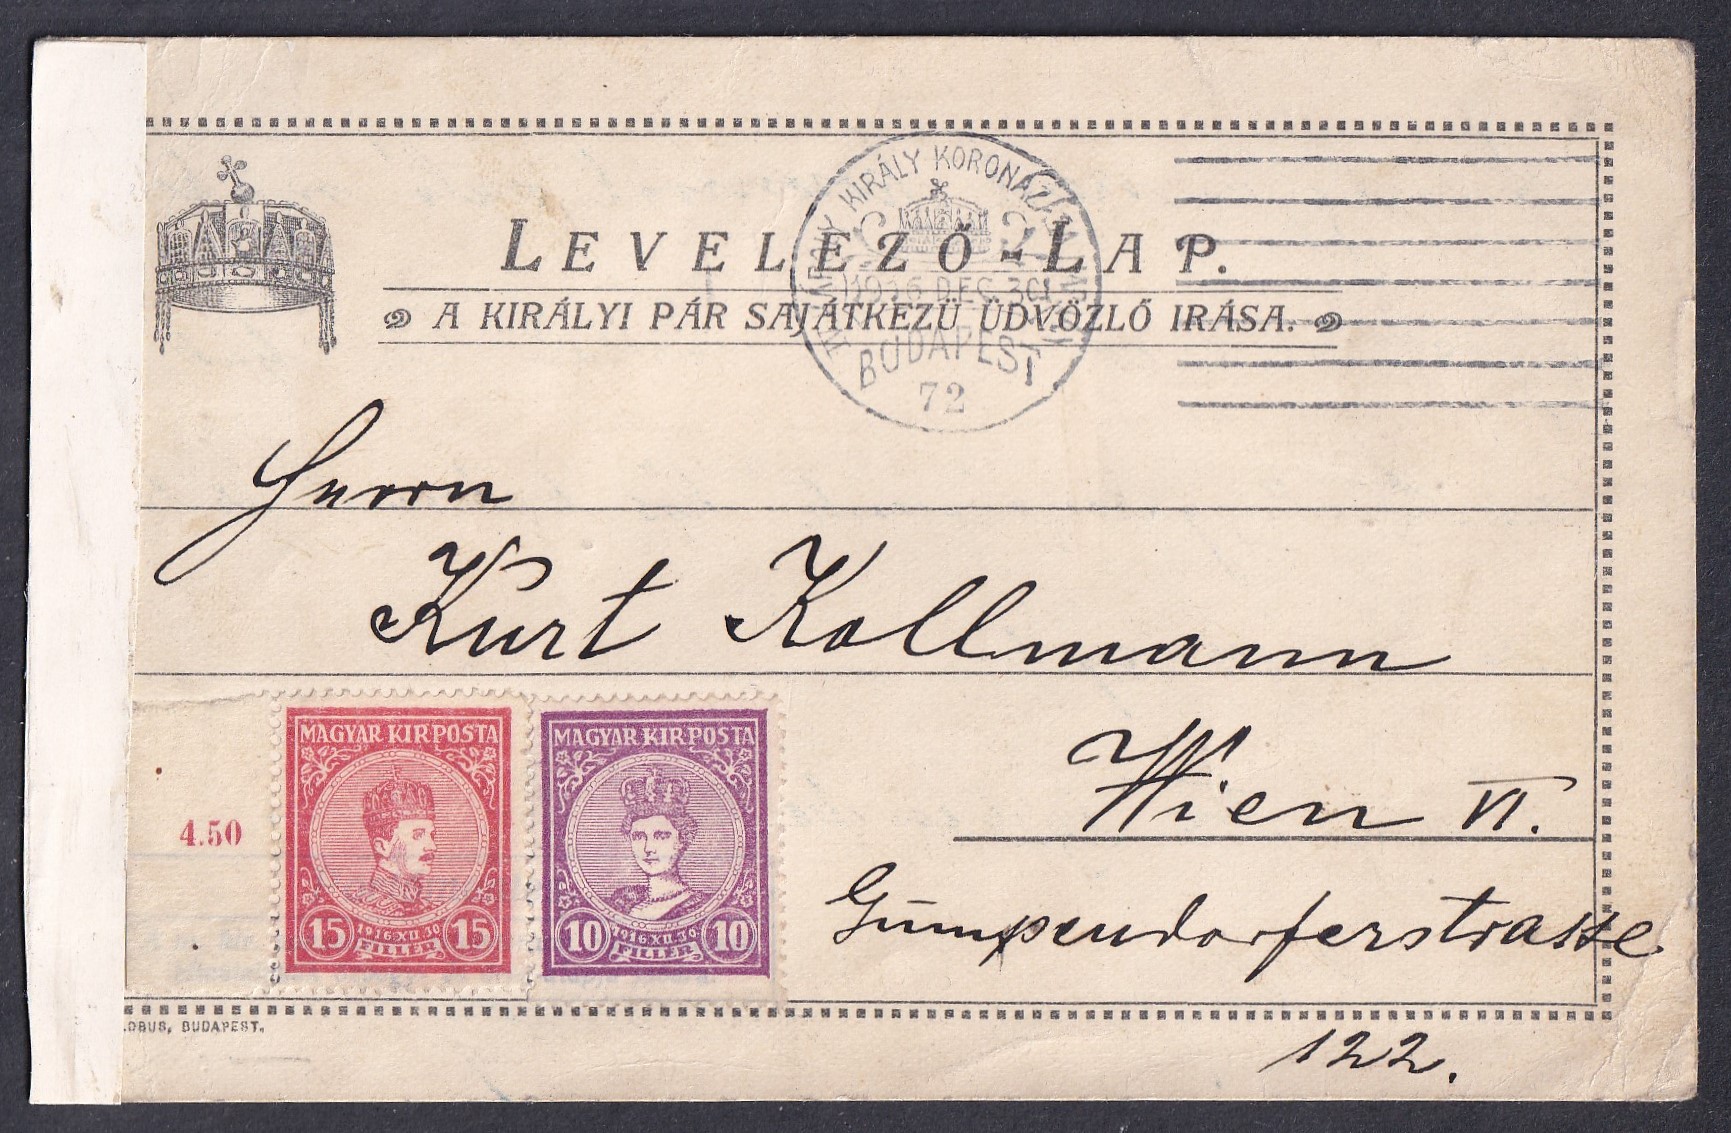 LEVELEZŐ-LAP.
A KIRÁLYI PÁR SAJÁTKEZÜ ÜDVÖZLŐ IRÁSA.
KIRÁLY KORONÁZ
DEC. 30
BUDAPEST
72
Herrn
Kurt Kollmann
Wien VI.
Gumpendorferstrasse
122.
4.50
MAGYAR KIR POSTA
15 15
1916·XII·30
FILLÉR
MAGYAR KIR POSTA
10 10
1916·XII·30
FILLÉR
LOBUS, BUDAPEST.